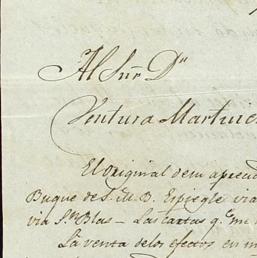 Al Sũr Dⁿ
Ventura Martine
El Original de mi aprecia
Buque de S. M. B. Espiegle via
via Sⁿ Blas — Las cartas q.ᵉ me
La venta de los efectos en m